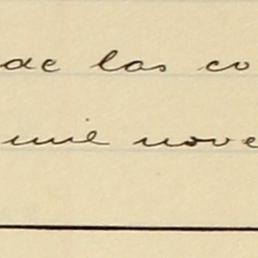 de las co
mil nove